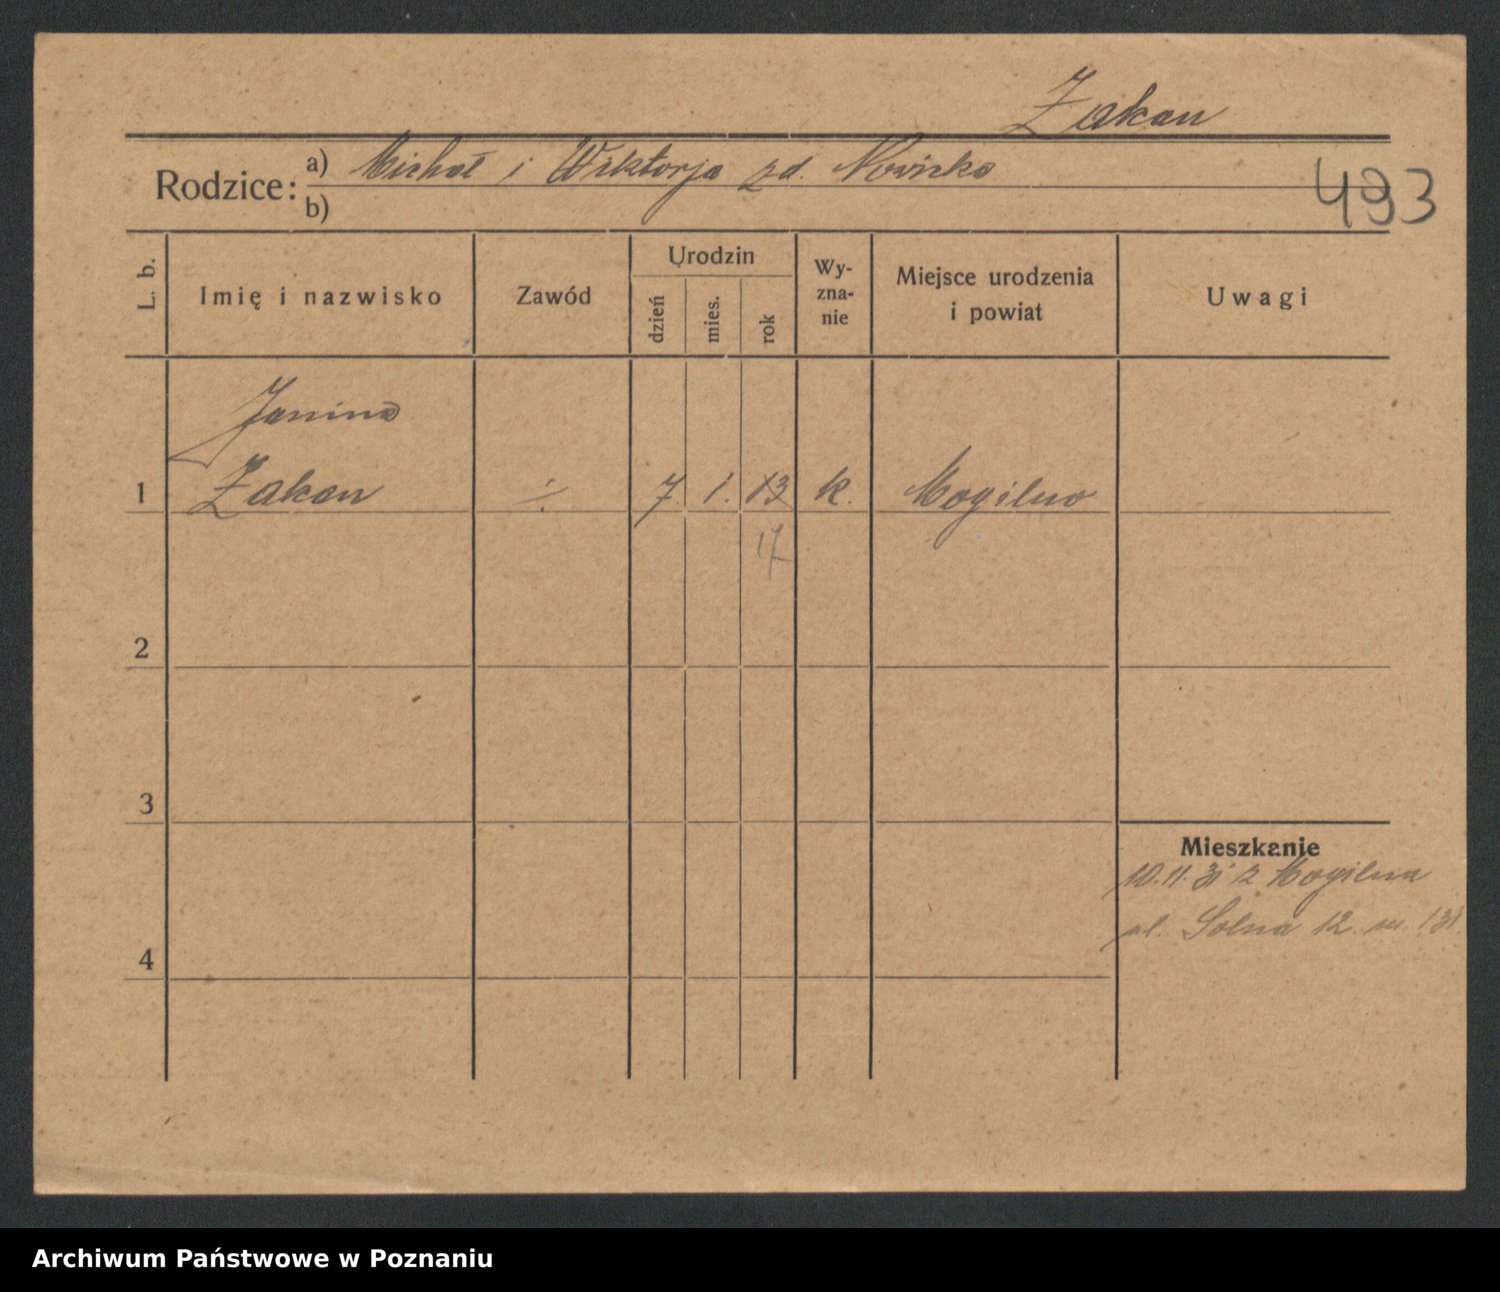 Żakan
Rodzice: a) Michał i Wiktorja zd. Nowicka
b)
493
L. b.
Imię i nazwisko
Zawód
Urodzin
dzień
mies.
rok
Wy-
zna-
nie
Miejsce urodzenia
i powiat
Uwagi
Janina
1 Żakan ÷ 7. 1. 13 k. Mogilno
17
2
3
Mieszkanie
10.11.31 z Mogilna
ul. Solna 12 m 
4
Archiwum Państwowe w Poznaniu